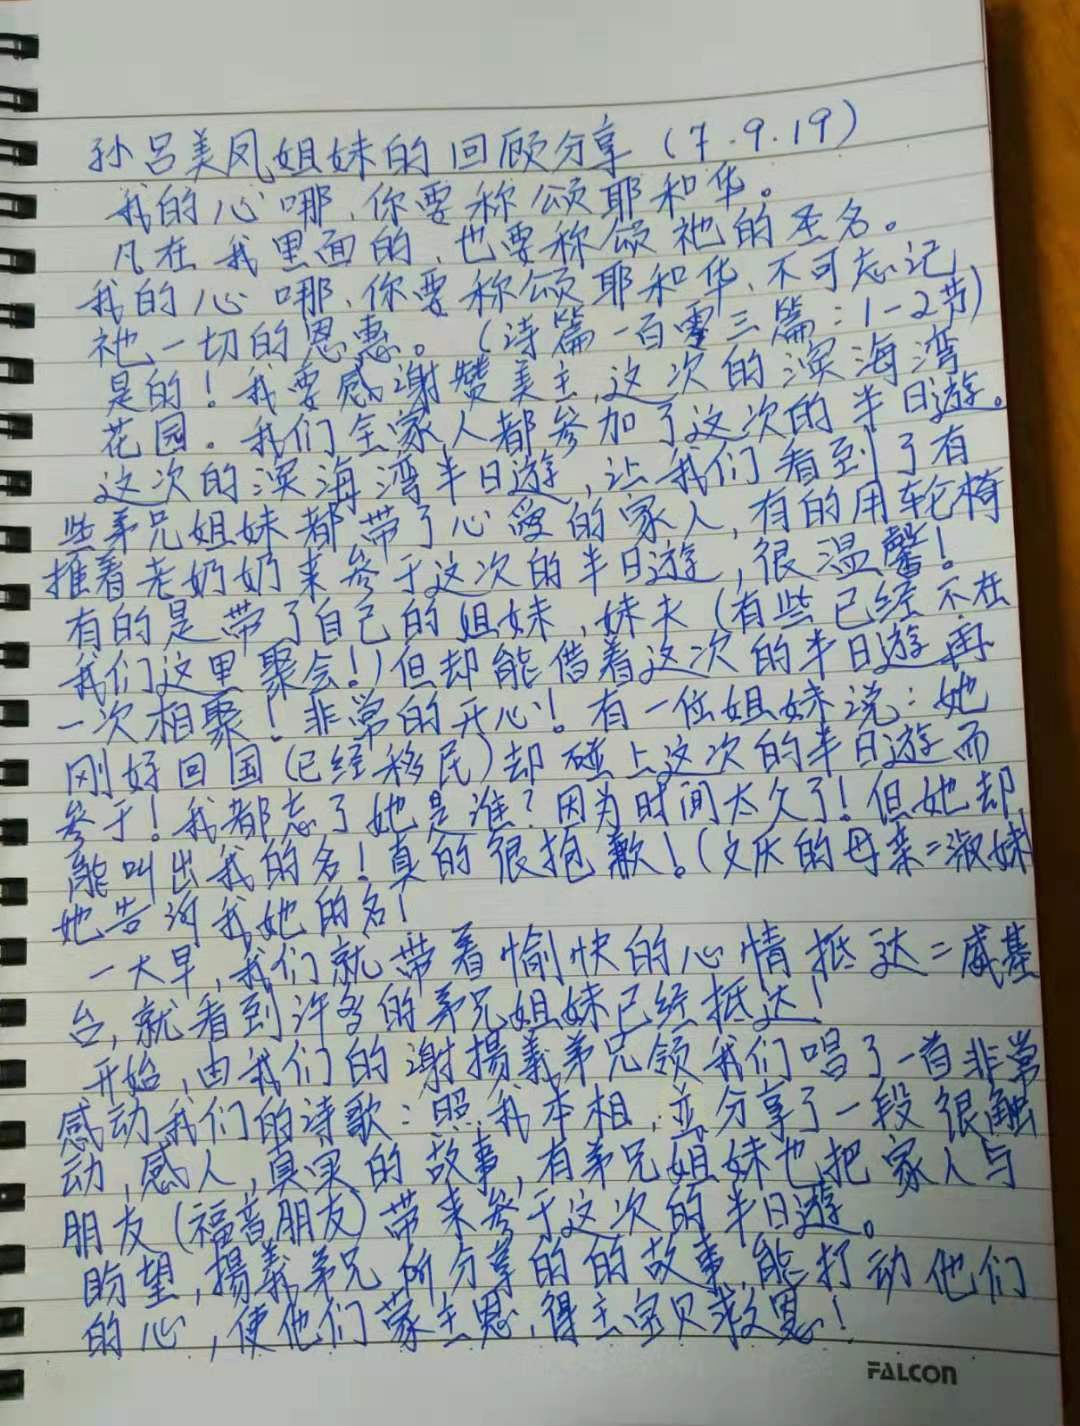 孙吕美凤姐妹的回顾分享(7.9.19)
我的心哪、你要称颂耶和华。
凡在我里面的、也要称颂祂的圣名。
我的心哪、你要称颂耶和华、不可忘记
祂一切的恩惠。(诗篇一百零三篇:1-2节)
是的!我要感谢赞美主,这次的滨海湾
花园。我们全家人都参加了这次的半日遊。
这次的滨海湾半日遊,让我们看到了有
些弟兄姐妹都带了心爱的家人,有的用轮椅
推着老奶奶来参于这次的半日遊,很温馨!
有的是带了自己的姐妹,妹夫(有些已经不在
我们这里聚会!)但却能借着这次的半日遊再
一次相聚!非常的开心!有一位姐妹说:她
刚好回国(已经移民)却碰上这次的半日遊而
参于!我都忘了她是谁?因为时间太久了!但她却
能叫出我的名!真的很抱歉!(文庆的母亲=淑妹
她告诉我她的名!
一大早,我们就带着愉快的心情抵达=威基
台,就看到许多的弟兄姐妹已经抵达!
开始,由我们的谢揚義弟兄领我们唱了一首非常
感动我们的诗歌:照我本相,並分享了一段很触
动,感人,真实的故事,有弟兄姐妹也把家人与
朋友(福音朋友)带来参于这次的半日遊。
盼望,揚義弟兄所分享的的故事,能打动他们
的心,使他们蒙主恩,得主宝贝救恩!
FALCON